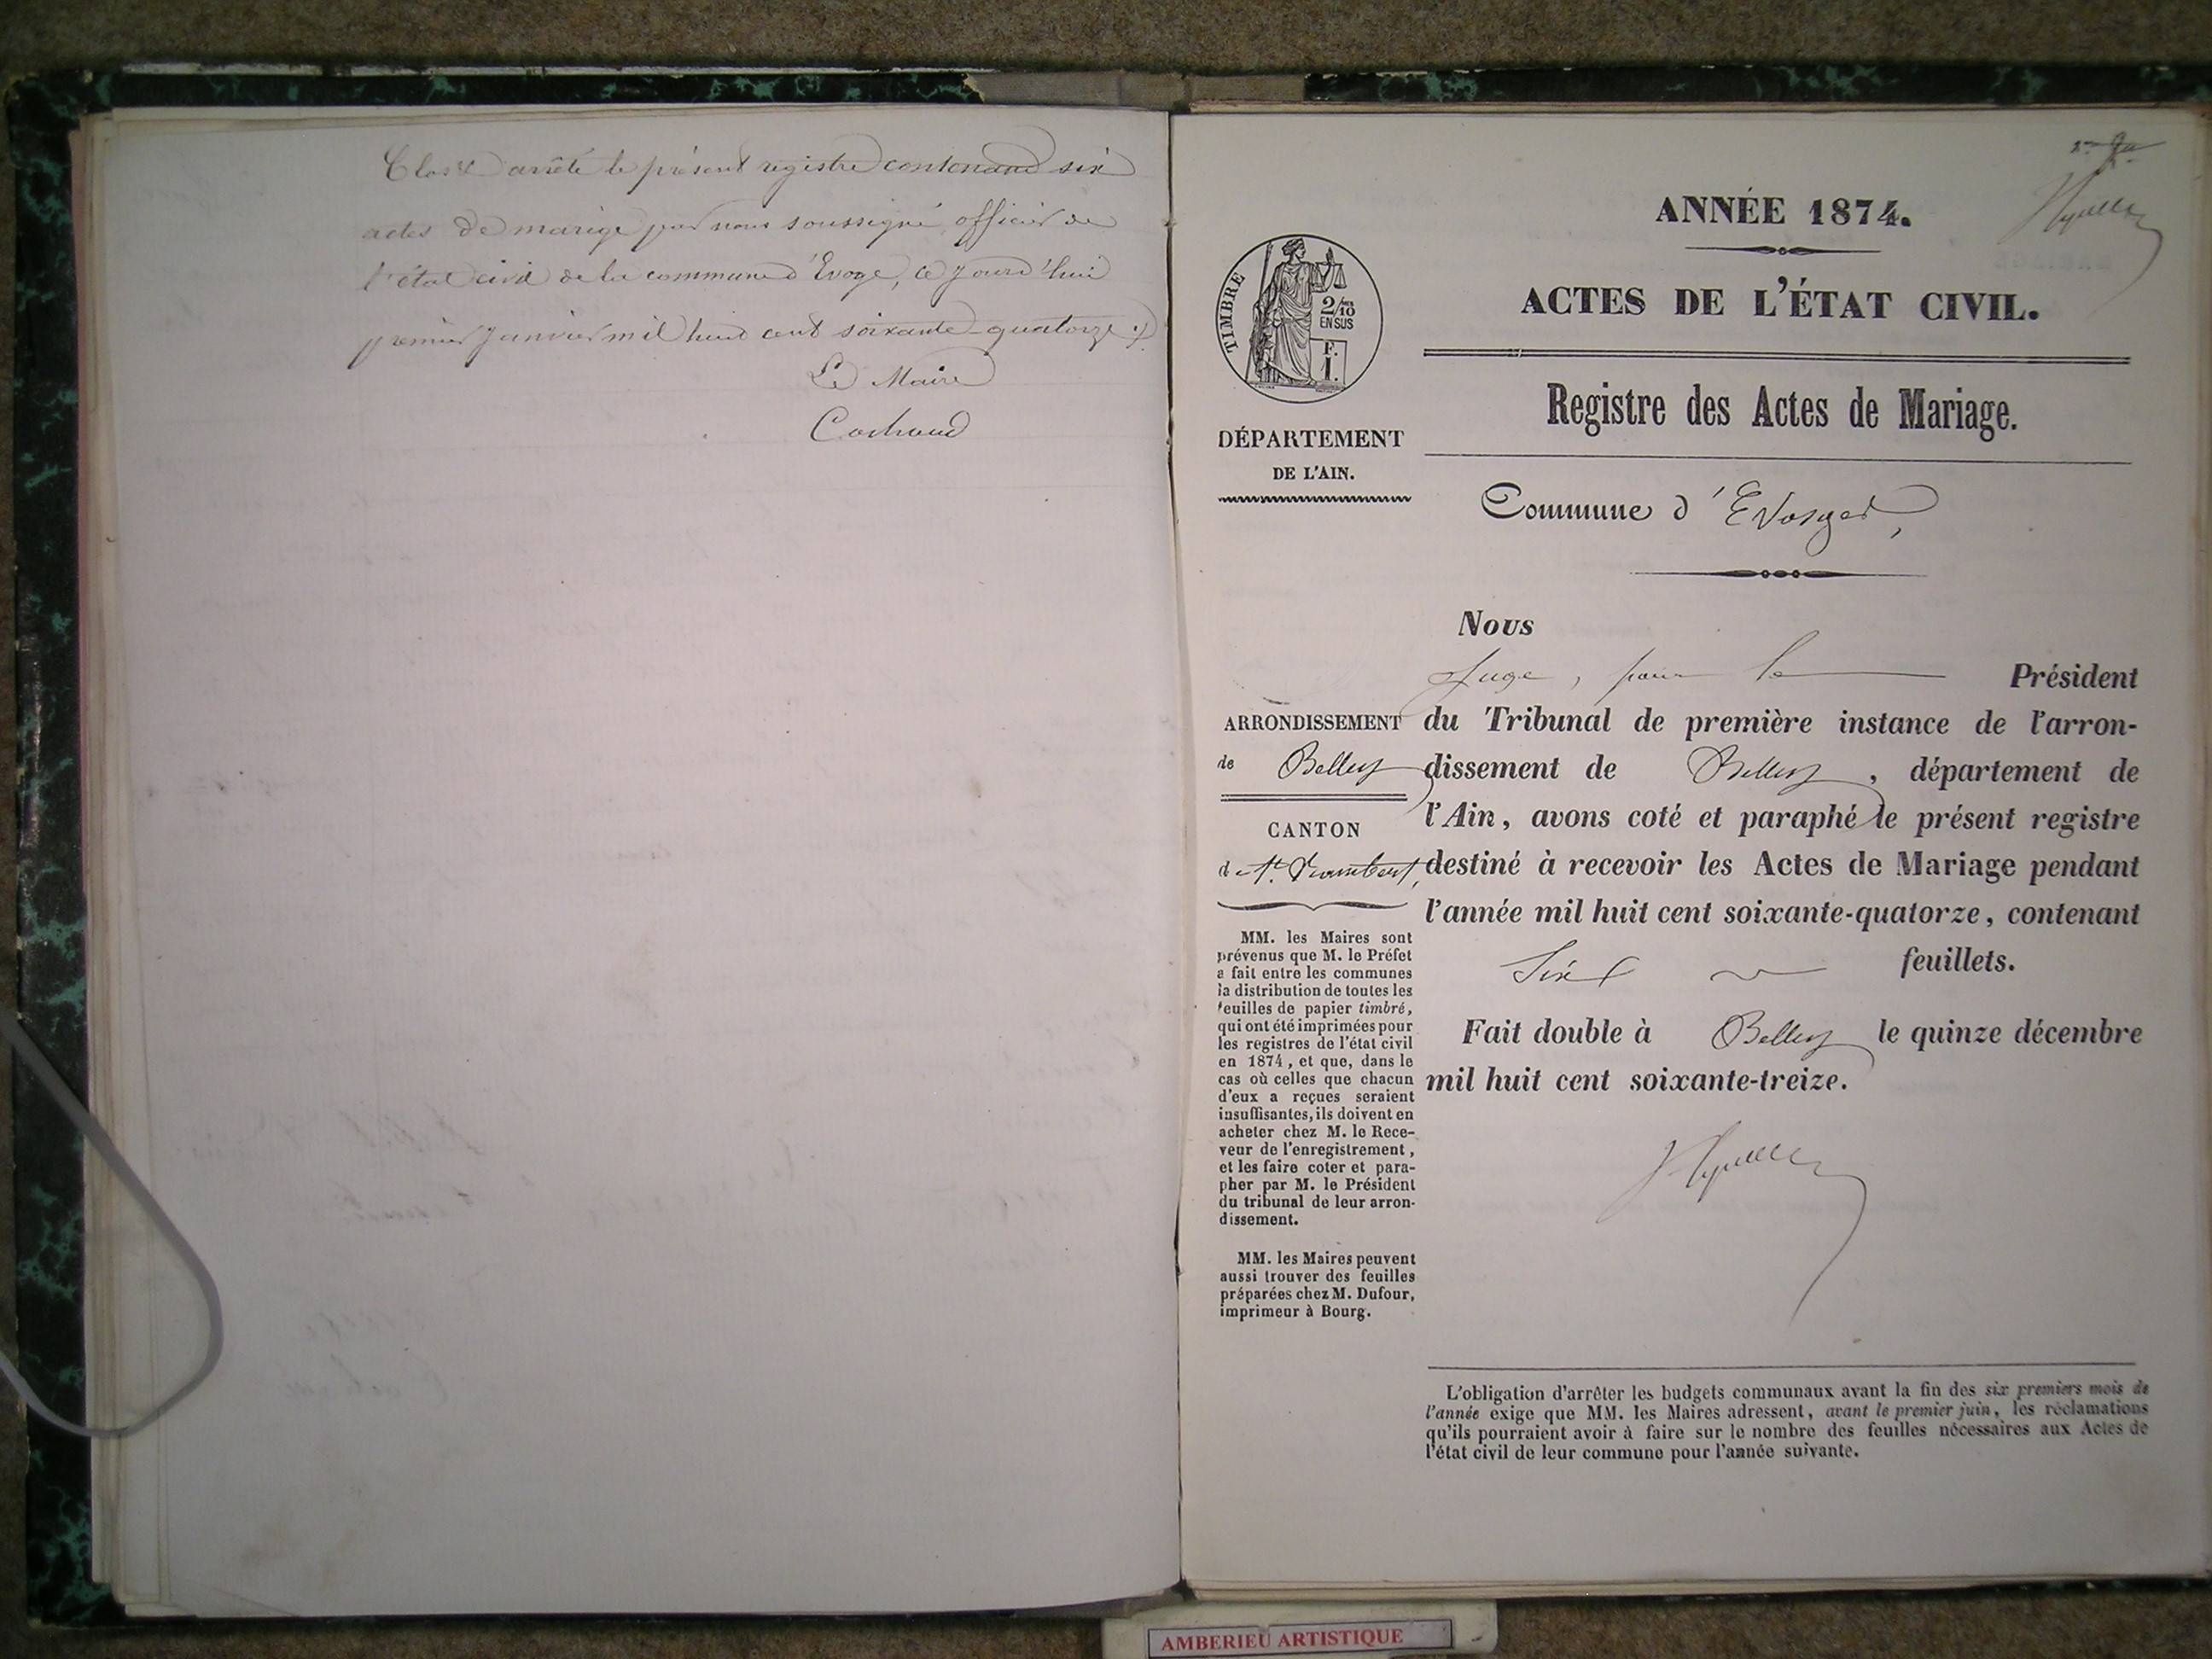 Clos et arrêté le présent registre contenant six
actes de marige par nous soussigné, officier de
l'état civil de la commune d'Evoge, ce jourd'hui
premier janvier mil huit cent soixante-quatorze
Le Maire
ANNÉE 1874.
ACTES DE L'ÉTAT CIVIL.
Registre des Actes de Mariage.
Commune d'Evosges,
TIMBRE
2/10
EN SUS
F.
1.
DÉPARTEMENT
DE L'AIN.
ARRONDISSEMENT
de Belley
CANTON
de St. Rambert,
MM. les Maires sont
prévenus que M. le Préfet
a fait entre les communes
la distribution de toutes les
feuilles de papier timbré,
qui ont été imprimées pour
les registres de l'état civil
en 1874, et que, dans le
cas où celles que chacun
d'eux a reçues seraient
insuffisantes, ils doivent en
acheter chez M. le Rece-
veur de l'enregistrement,
et les faire coter et para-
pher par M. le Président
du tribunal de leur arron-
dissement.
MM. les Maires peuvent
aussi trouver des feuilles
préparées chez M. Dufour,
imprimeur à Bourg.
Nous
Juge, pour le Président
du Tribunal de première instance de l'arron-
dissement de Belley, département de
l'Ain, avons coté et paraphé le présent registre
destiné à recevoir les Actes de Mariage pendant
l'année mil huit cent soixante-quatorze, contenant
Six feuillets.
Fait double à Belley le quinze décembre
mil huit cent soixante-treize.
L'obligation d'arrêter les budgets communaux avant la fin des six premiers mois de
l'année exige que MM. les Maires adressent, avant le premier juin, les réclamations
qu'ils pourraient avoir à faire sur le nombre des feuilles nécessaires aux Actes de
l'état civil de leur commune pour l'année suivante.
AMBERIEU ARTISTIQUE